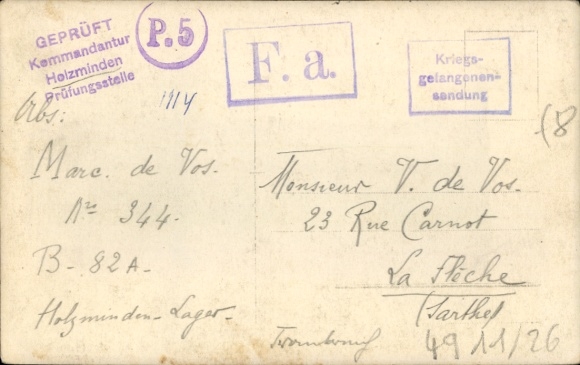 GEPRÜFT
Kommandantur
Holzminden
Prüfungsstelle
P.5
F. a.
Kriegs-
gefangenen-
sendung
1914
Abs:
(8
Marc. de Vos.
No 344.
B- 82A-
Holzminden-Lager-
Monsieur V. de Vos.
23 Rue Carnot
La Flèche
(Sarthe)
49 11/26